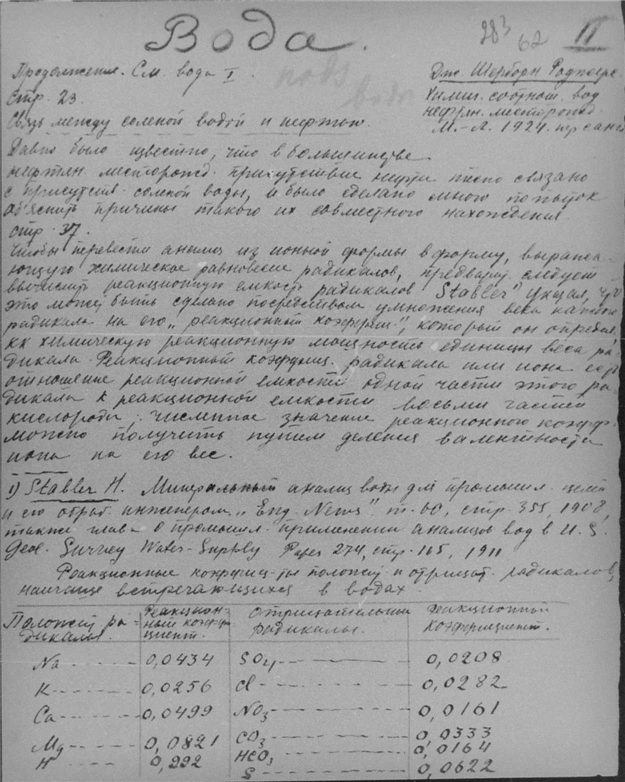 Вода.
283 62 II
Продолжение. См. вода I.
Дж. Шерборн Роджерс
стр. 23.
Химич. состав вод
нефтян. месторожд.
Связь между соленой водой и нефтью.
М.-Л. 1924.
Давно было известно, что в большинстве
нефтян. месторожд. присутствие нефти тесно связано
с присутств. соленой воды, и было сделано много попыток
объяснить причины такого их совместного нахождения
стр. 37.
Чтобы перевести анализ из ионной формы в форму, выража-
ющую химическое равновесие радикалов, предварит. следует
вычислить реакционную емкость радикалов. Stabler 1) указал, что
это может быть сделано посредством умножения веса каждого
радикала на его "реакционный коэффиц.", который он определ.
как химическую реакционную мощность единицы веса ра-
дикала. Реакционный коэффиц. радикала или иона есть
отношение реакционной емкости одной части этого ра-
дикала к реакционной емкости восьми частей
кислорода; численное значение реакционного коэфф.
можно получить путем деления валентности
иона на его вес.
1) Stabler H. Минеральный анализ воды для промышл. целей
и его обраб. инженером. "Eng. News" т. 60, стр. 355, 1908,
также глава о промышл. применении анализов вод в U. S.
Geol. Survey Water-Supply Paper 274, стр. 165, 1911
Реакционные коэффиц-ты положит. и отрицат. радикалов,
наичаще встречающихся в водах.
Положит. ра- Реакцион- Отрицательные Реакционный
дикалы. ный коэффи- радикалы. коэффициент.
циент.
Na 0,0434 SO4 0,0208
K 0,0256 Cl 0,0282
Ca 0,0499 NO3 0,0161
Mg 0,0821 CO3 0,0333
H 0,992 HCO3 0,0164
S 0,0622